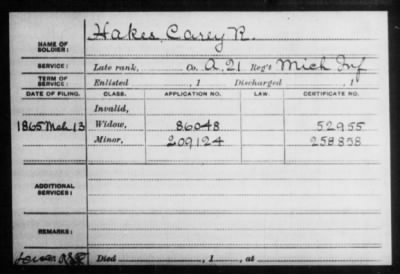 NAME OF SOLDIER: Hakes, Carey R.
SERVICE: Late rank, Co. A, 21 Reg't Mich Inf
TERM OF SERVICE: Enlisted , 1 Discharged , 1
DATE OF FILING. CLASS. APPLICATION NO. LAW. CERTIFICATE NO.
Invalid,
1865 Mch 13 Widow, 86048 52955
Minor, 209124 258858
ADDITIONAL SERVICES:
REMARKS:
Died , 1 , at